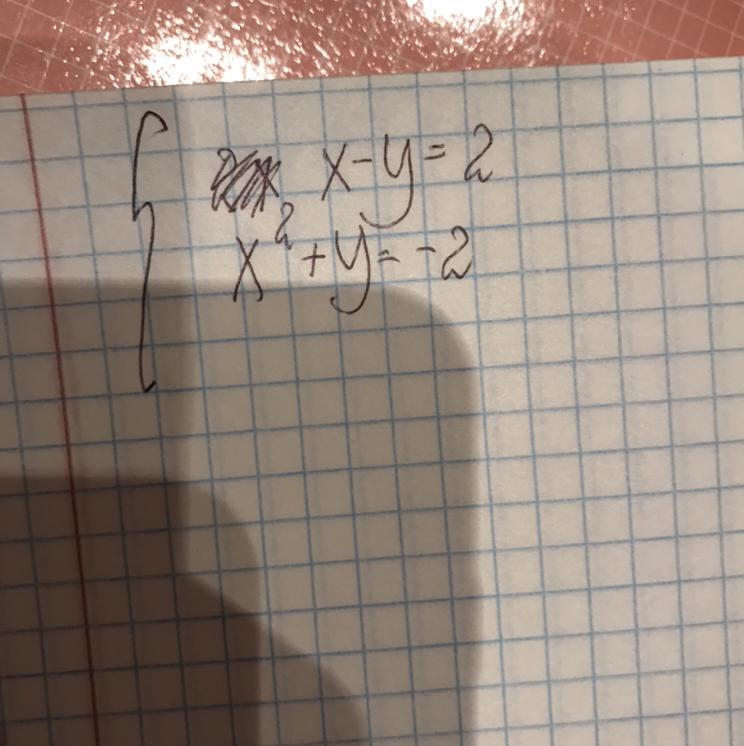 x-y=2
x²+y=-2